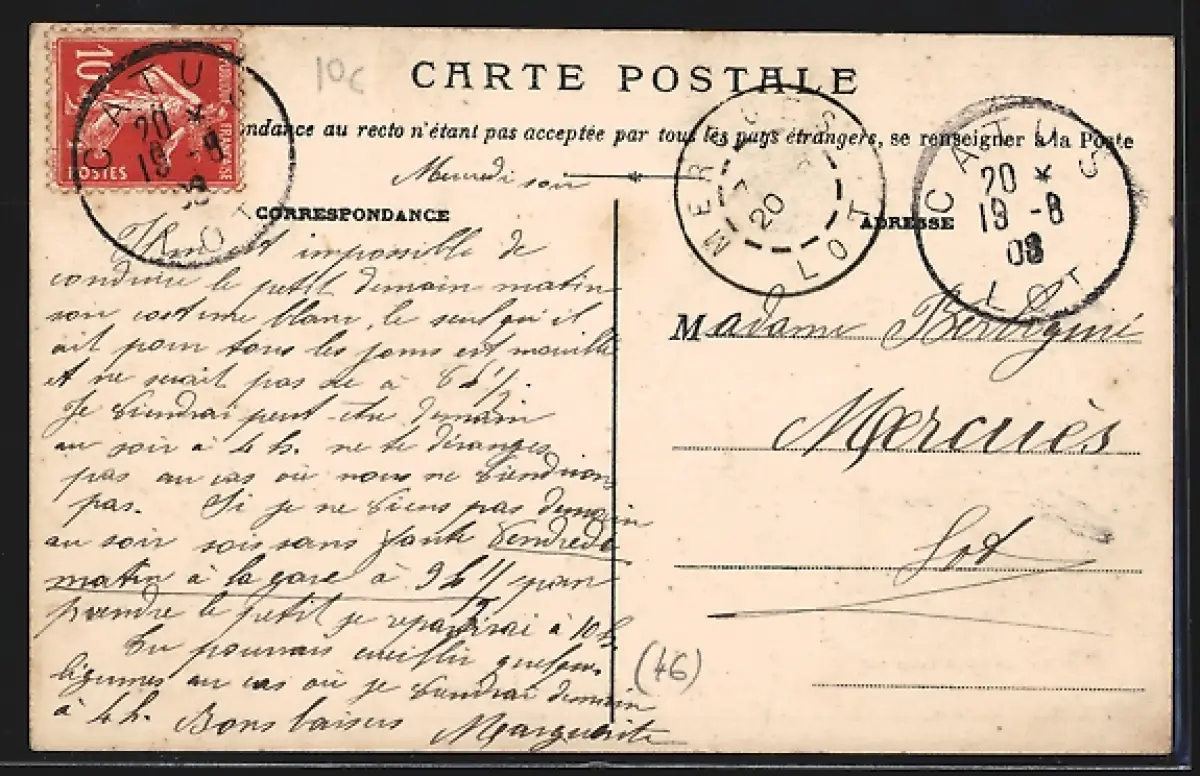 10c
CARTE POSTALE
ndance au recto n'étant pas acceptée par tous les pays étrangers, se renseigner à la Poste
Mercredi soir
CORRESPONDANCE
ADRESSE
10c
POSTES
FRANÇAISE
CATUS
20 *
19 -8
08
LOT
MERCUÈS
20
LOT
CATUS
20 *
19 -8
08
LOT
est impossible de
conduire le petit demain matin
son costume blanc, le seul qu'il
ait pour tous les jours est mouillé
et ne serait pas sec à 6 h ½.
Je viendrai peut-être demain
au soir à 4 h. ne te déranges
pas au cas où nous ne viendrions
pas. Si je ne viens pas demain
au soir sois sans faute Vendredi
matin à la gare à 9 h ½ pour
prendre le petit je repartirai à 10 h.
Tu pourrais cueillir quelques
légumes au cas où je viendrai demain
à 4 h. Bons baisers Marguerite
Madame
Mercuès
Lot
(46)